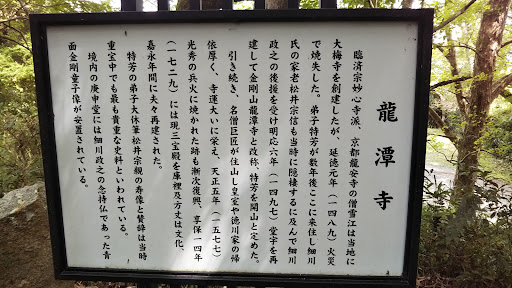 龍潭寺
臨済宗妙心寺派、京都龍安寺の僧雪江は当地に
大梅寺を創建したが、延徳元年(一四八九)火災
で焼失した。弟子特芳が数年後ここに来住し細川
氏の家老松井宗信も当時に隠棲するに及んで細川
政之の後援を受け明応六年(一四九七)堂宇を再
建して金剛山龍潭寺と改称、特芳を開山と定めた。
引き続き、名僧巨匠が住山し皇室や徳川家の帰
依厚く、寺運大いに栄え、天正五年(一五七七)
光秀の兵火に焼かれた跡も漸次復興、享保一四年
(一七二九)には現三宝殿を庫裡及方丈は文化、
嘉永年間に夫々再建された。
特芳の弟子大休筆松井宗親の寿像と賛辞は当時
重宝中でも最も貴重な史料といわれている。
境内の庚申堂には細川政之の念持仏であった青
面金剛童子像が安置されている。